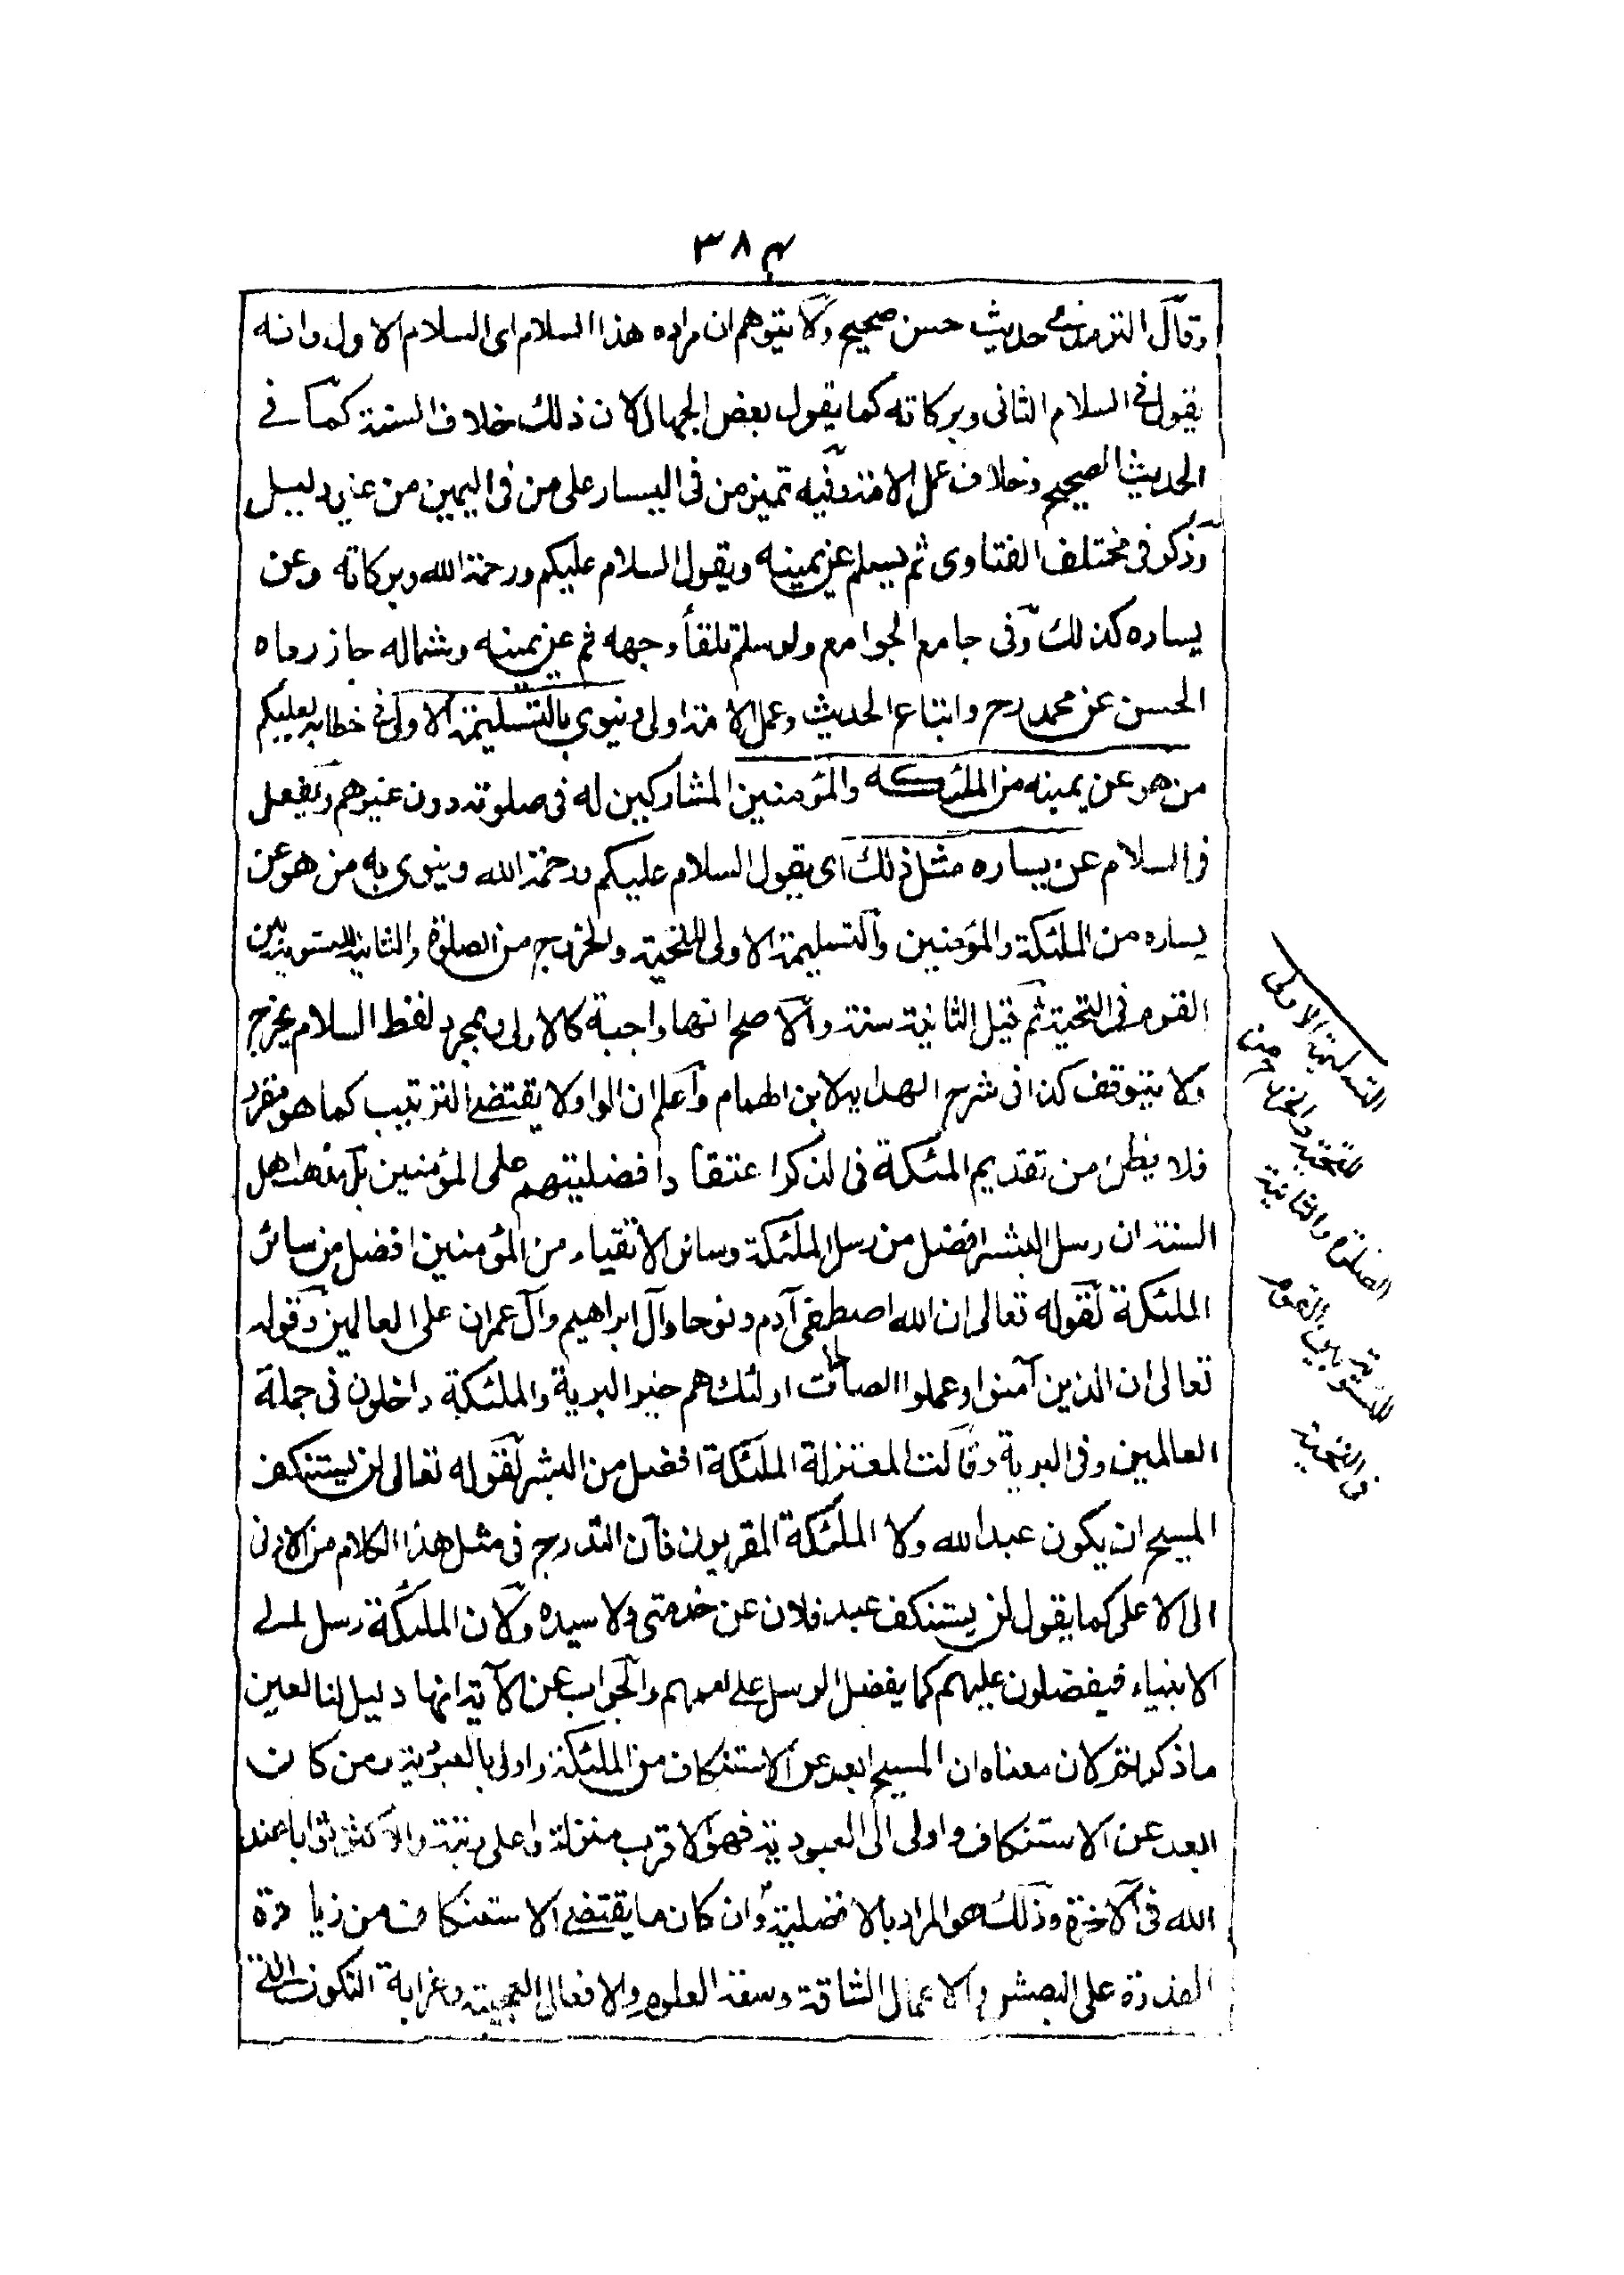 ٣٨٤
وقال الترمذي حديث حسن صحيح ولا يتوهم ان مراده هذا السلام اى السلام الاول وانه
يقول فى السلام الثانى وبركاته كما يقول بعض الجهال لان ذلك خلاف السنة كما فى
الحديث الصحيح وخلاف عمل الامة وفيه تميز من فى اليسار على من فى اليمين من غير دليل
وذكر فى مختلف الفتاوى ثم يسلم عن يمينه ويقول السلام عليكم ورحمة الله وبركاته وعن
يساره كذلك وفى جامع الجوامع ولو سلم تلقأ وجهه ثم عن يمينه وشماله جاز رواه
الحسن عن محمد رح واتباع الحديث وعمل الامة اولى وينوى بالتسليمة الاولى فى خطابه بعليكم
من هو عن يمينه من الملئكه والمؤمنين المشاركين له فى صلوته دون غيرهم ويفعل
فى السلام عن يساره مثل ذلك اى يقول السلام عليكم ورحمة الله وينوى به من هو عن
يساره من الملئكة والمؤمنين والتسليمة الاولى للتحية والخروج من الصلوة والثانية للتسوية بين
القوم فى التحية ثم قيل الثانية سنة والاصح انها واجبة كالاولى وبمجرد لفظ السلام يخرج
ولا يتوقف كذا فى شرح الهداية لابن الهمام واعلم ان الواو لا يقتضى الترتيب كما هو مقرر
فلا يظن من تقديم الملئكة فى الذكر اعتقاد افضليتهم على المؤمنين بل مذهب اهل
السنة ان رسل البشر افضل من رسل الملئكة وسائر الاتقياء من المؤمنين افضل من سائر
الملئكة لقوله تعالى ان الله اصطفى آدم ونوحا وآل ابراهيم وآل عمران على العالمين وقوله
تعالى ان الذين آمنوا وعملوا الصالحات اولئك هم خير البرية والملئكة داخلون فى جملة
العالمين وفى البرية وقالت المعتزلة الملئكة افضل من البشر لقوله تعالى لن يستنكف
المسيح ان يكون عبدا لله ولا الملئكة المقربون فان التدرج فى مثل هذا الكلام من الادنى
الى الاعلى كما يقول لن يستنكف عبد فلان عن خدمتى ولا سيده ولان الملئكة رسل الى
الانبياء فيفضلون عليهم كما يفضل الرسل على اممهم والجواب عن الآية انها دليل لنا لعين
ما ذكرتم لان معناه ان المسيح ابعد عن الاستنكاف من الملئكة واولى بالعبودية ومن كان
ابعد عن الاستنكاف واولى الى العبودية فهو الاقرب منزلة واعلى رتبة والاكثر ثوابا عند
الله فى الآخرة وذلك هو المراد بالافضلية وان كان ما يقتضى الاستنكاف من زيادة
القدرة على البشر والاعمال الشاقة وسعة العلوم والافعال العجيبة وغرابة التكون
التسليمة الاولى
للتحية والخروج من
الصلوة والثانية
للتسوية بين القوم
فى التحية